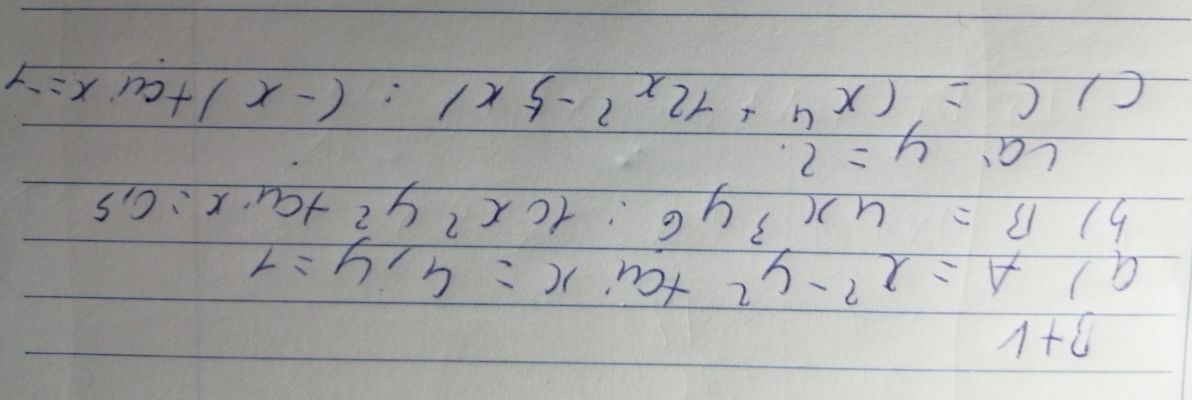 B+V
a) A = x² - y² tại x = 4, y = 1
b) B = 4x³y⁶ : 10x²y² tại x = 0,5
và y = 2.
c) C = (x⁴ + 12x² - 5x) : (-x) tại x = -1